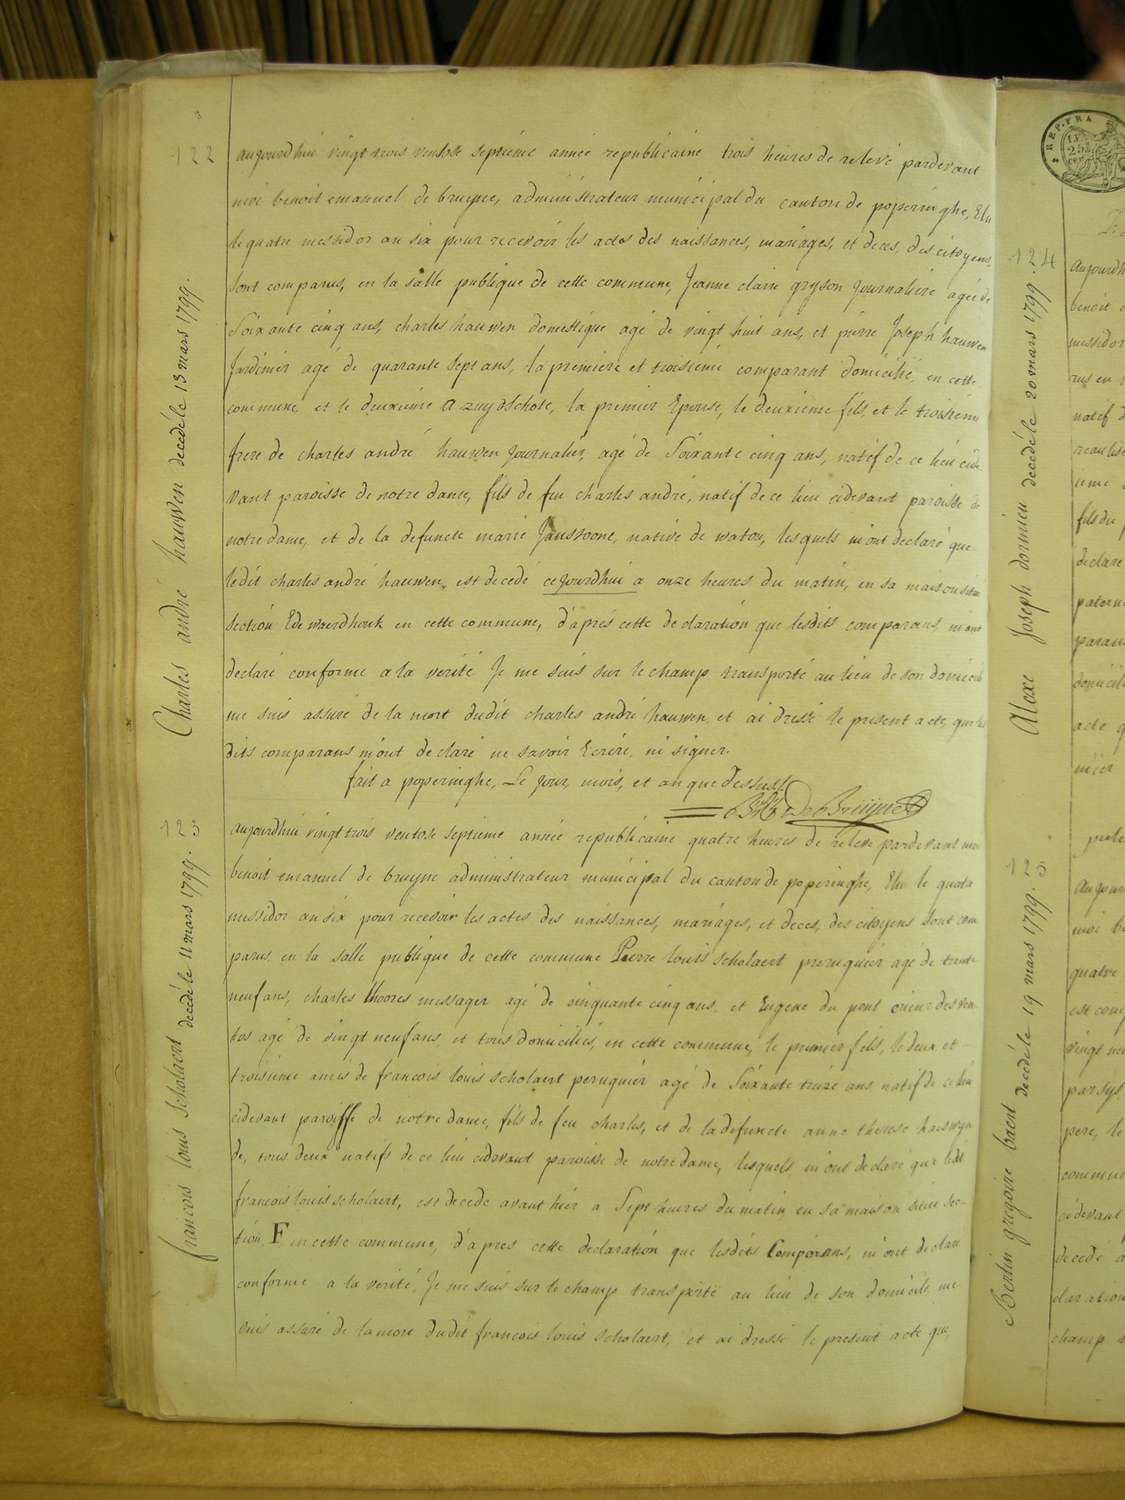 122
Charles andré hauwen decédé le 13 mars 1799.
aujourdhui vingt trois ventose septieme année republicaine trois heures de relevé pardevant
moi benoit emanuel de bruyne, administrateur municipal du canton de poperinghe, Elu
le quatre messidor an six pour recevoir les actes des naissances, mariages, et deces, des citoyens,
sont comparus, en la salle publique de cette commune, Jeanne claire gryson Journaliere agée de
Soixante cinq ans, charles hauwen domestique agé de vingt huit ans, et pierre Joseph hauwen
Jardinier agé de quarante sept ans, la premiere et troisieme comparant domicilié, en cette
commune et le deuxieme a zuydschote, la premier Epouse, le deuxieme fils, et le troisieme
frere de charles andré hauwen Journalier, agé de Soixante cinq ans, natif de ce lieu cide
vant paroisse de notre dame, fils de feu charles andré, natif de ce lieu cidevant paroisse de
notre dame, et de la defuncte marie Janssoone, native de watou, lesquels m'ont declaré que
ledit charles andré hauwen, est decedé cejourdhui a onze heures du matin, en sa maison située
section E de woesthouk en cette commune, d'aprés cette declaration que lesdits comparans, m'ont
declaré conforme a la verité Je me suis sur le champ transporté au lieu de son domicile
me suis assuré de la mort dudit charles andré hauwen, et ai dressé le present acte, que les
dits comparans m'ont declaré ne savoir Ecrire, ni signer.
fait a poperinghe, Le Jour, mois, et an que dessus.
De Bruyne
123
francois louis Scholaert decédé le 11 mars 1799.
aujourdhui vingt trois ventose septieme année republicaine quatre heures de relevé pardevant moi
benoit emanuel de bruyne administrateur municipal du canton de poperinghe, Elu le quatre
messidor an six pour recevoir les actes des naissances, mariages, et deces, des citoyens sont com
parus, en la salle publique de cette commune Pierre louis scholaert peruquier agé de trente
neuf ans, charles thoores messager agé de cinquante cinq ans, et Eugene du pont crieur des ven
tes agé de vingt neuf ans, et tous domiciliés, en cette commune, le premier fils, le deux et
troisieme amis de francois louis scholaert peruquier agé de Soixante treize ans natif de ce lieu
cidevant paroisse de notre dame, fils de feu charles, et de la defuncte anne therese
de, tous deux natifs de ce lieu cidevant paroisse de notre dame, lesquels m'ont declaré que ledit
francois louis scholaert, est decedé avant hier a Sept heures du matin, en sa maison située sec-
tion, F en cette commune, d'apres cette declaration que lesdits Comparans, m'ont declaré
conforme a la verité, Je me suis sur le champ transporté au lieu de son domicile me
suis assuré de la mort dudit francois louis scholaert, et ai dressé le present acte que
REP. FRA
124
Aloxe Joseph dormieu decedé le 20 mars 1799.
aujourdh
benoit
messidor
natif d
fils du
declare
patern
paran
domicil
acte q
125
Berlin gregoire baert decédé le 19 mars 1799.
moi b
quatre
est com
vingt ne
pere, le
commun
cidevant
decedé a
claration
champ